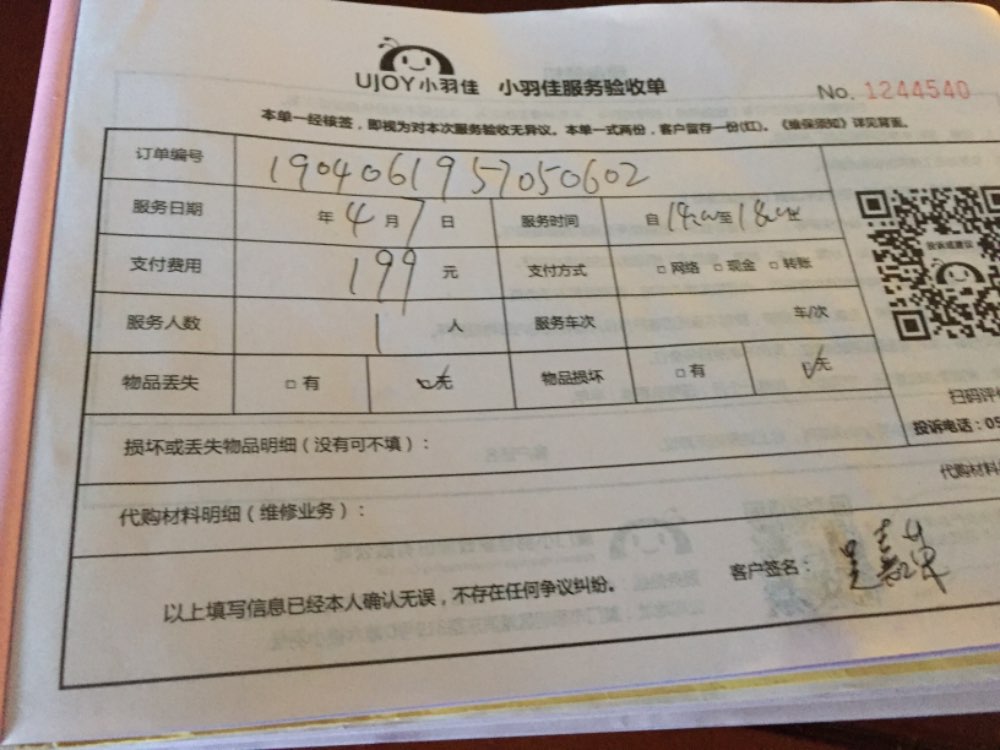 UJOY小羽佳 小羽佳服务验收单
No. 1244540
本单一经核签，即视为对本次服务验收无异议。本单一式两份，客户留存一份(红)。《维保须知》详见背面。
订单编号 1904061957050602
服务日期 年 4 月 7 日 服务时间 自 14:00 至 18:00
支付费用 199 元 支付方式 □ 网络 □ 现金 □ 转账
投诉或建议
服务人数 1 人 服务车次 车/次
物品丢失 □ 有 ☑ 无 物品损坏 □ 有 ☑ 无
扫码评
投诉电话：05
损坏或丢失物品明细（没有可不填）：
代购材料
代购材料明细（维修业务）：
客户签名：
以上填写信息已经本人确认无误，不存在任何争议纠纷。